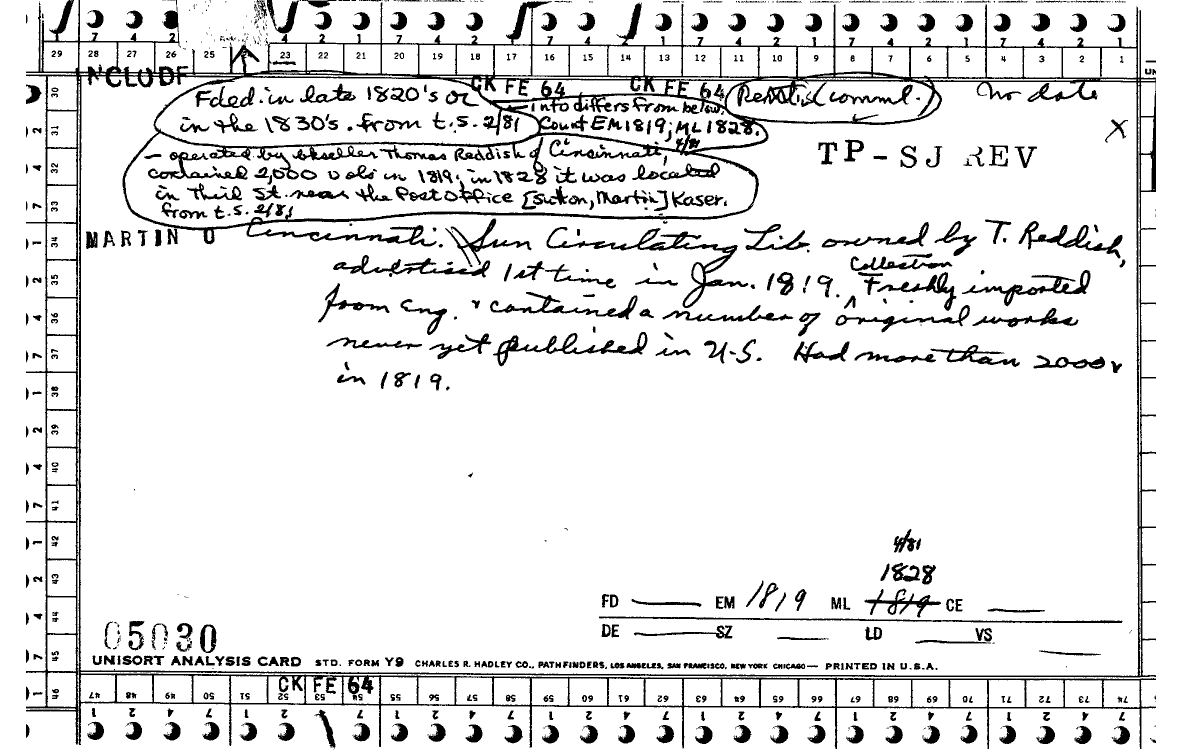 7 4 2 4 2 1 7 4 2 1 7 4 2 1 7 4 2 1 7 4 2 1
29 28 27 26 25 23 22 21 20 19 18 17 16 15 14 13 12 11 10 9 8 7 6 5 4 3 2 1
INCLUDE
CK FE 64 CK FE 64
Fded. in late 1820's or
in the 1830's. from t.s. 2/81
info differs from below.
Count EM 1819; ML 1828.
4/81
(comml.)
no date
X
TP-SJ REV
— operated by bkseller Thomas Reddish of Cincinnati,
contained 2,000 vols in 1819; in 1828 it was located
in Third St. near the Post Office [Sutton, Martin] Kaser.
from t.s. 2/81
MARTIN O Cincinnati. Sun Circulating Lib. owned by T. Reddish,
advertised 1st time in Jan. 1819. Collection Freshly imported
from Eng. & contained a number of original works
never yet published in U.S. Had more than 2000 v
in 1819.
4/81
1828
FD EM 1819 ML 1819 CE
DE SZ LD VS
05030
UNISORT ANALYSIS CARD STD. FORM Y9 CHARLES R. HADLEY CO., PATHFINDERS, LOS ANGELES, SAN FRANCISCO, NEW YORK CHICAGO — PRINTED IN U.S.A.
CK FE 64
30 31 32 33 34 35 36 37 38 39 40 41 42 43 44 45 46
47 48 49 50 51 52 53 54 55 56 57 58 59 60 61 62 63 64 65 66 67 68 69 70 71 72 73 74
1 2 4 7 1 2 4 7 1 2 4 7 1 2 4 7 1 2 4 7 1 2 4 7